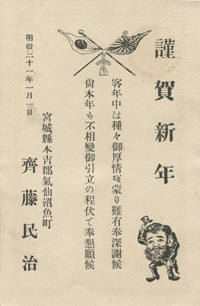 謹賀新年
客年中は種々御厚情を蒙り難有奉深謝候
尚本年も不相變御引立の程伏て奉懇願候
明治三十一年一月一日
宮城縣本吉郡氣仙沼魚町
齊藤民治